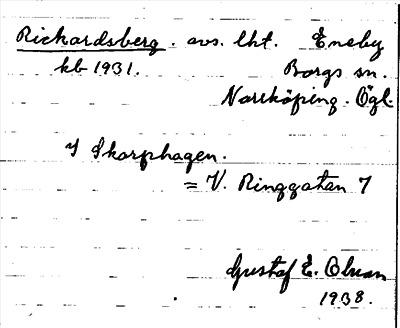 Rickardsberg. avs. lht. Eneby
kb 1931. Borgs sn.
Norrköping. Ögl.
I Skarphagen.
= V. Ringgatan 7
Gustaf E. Olsson
1938.